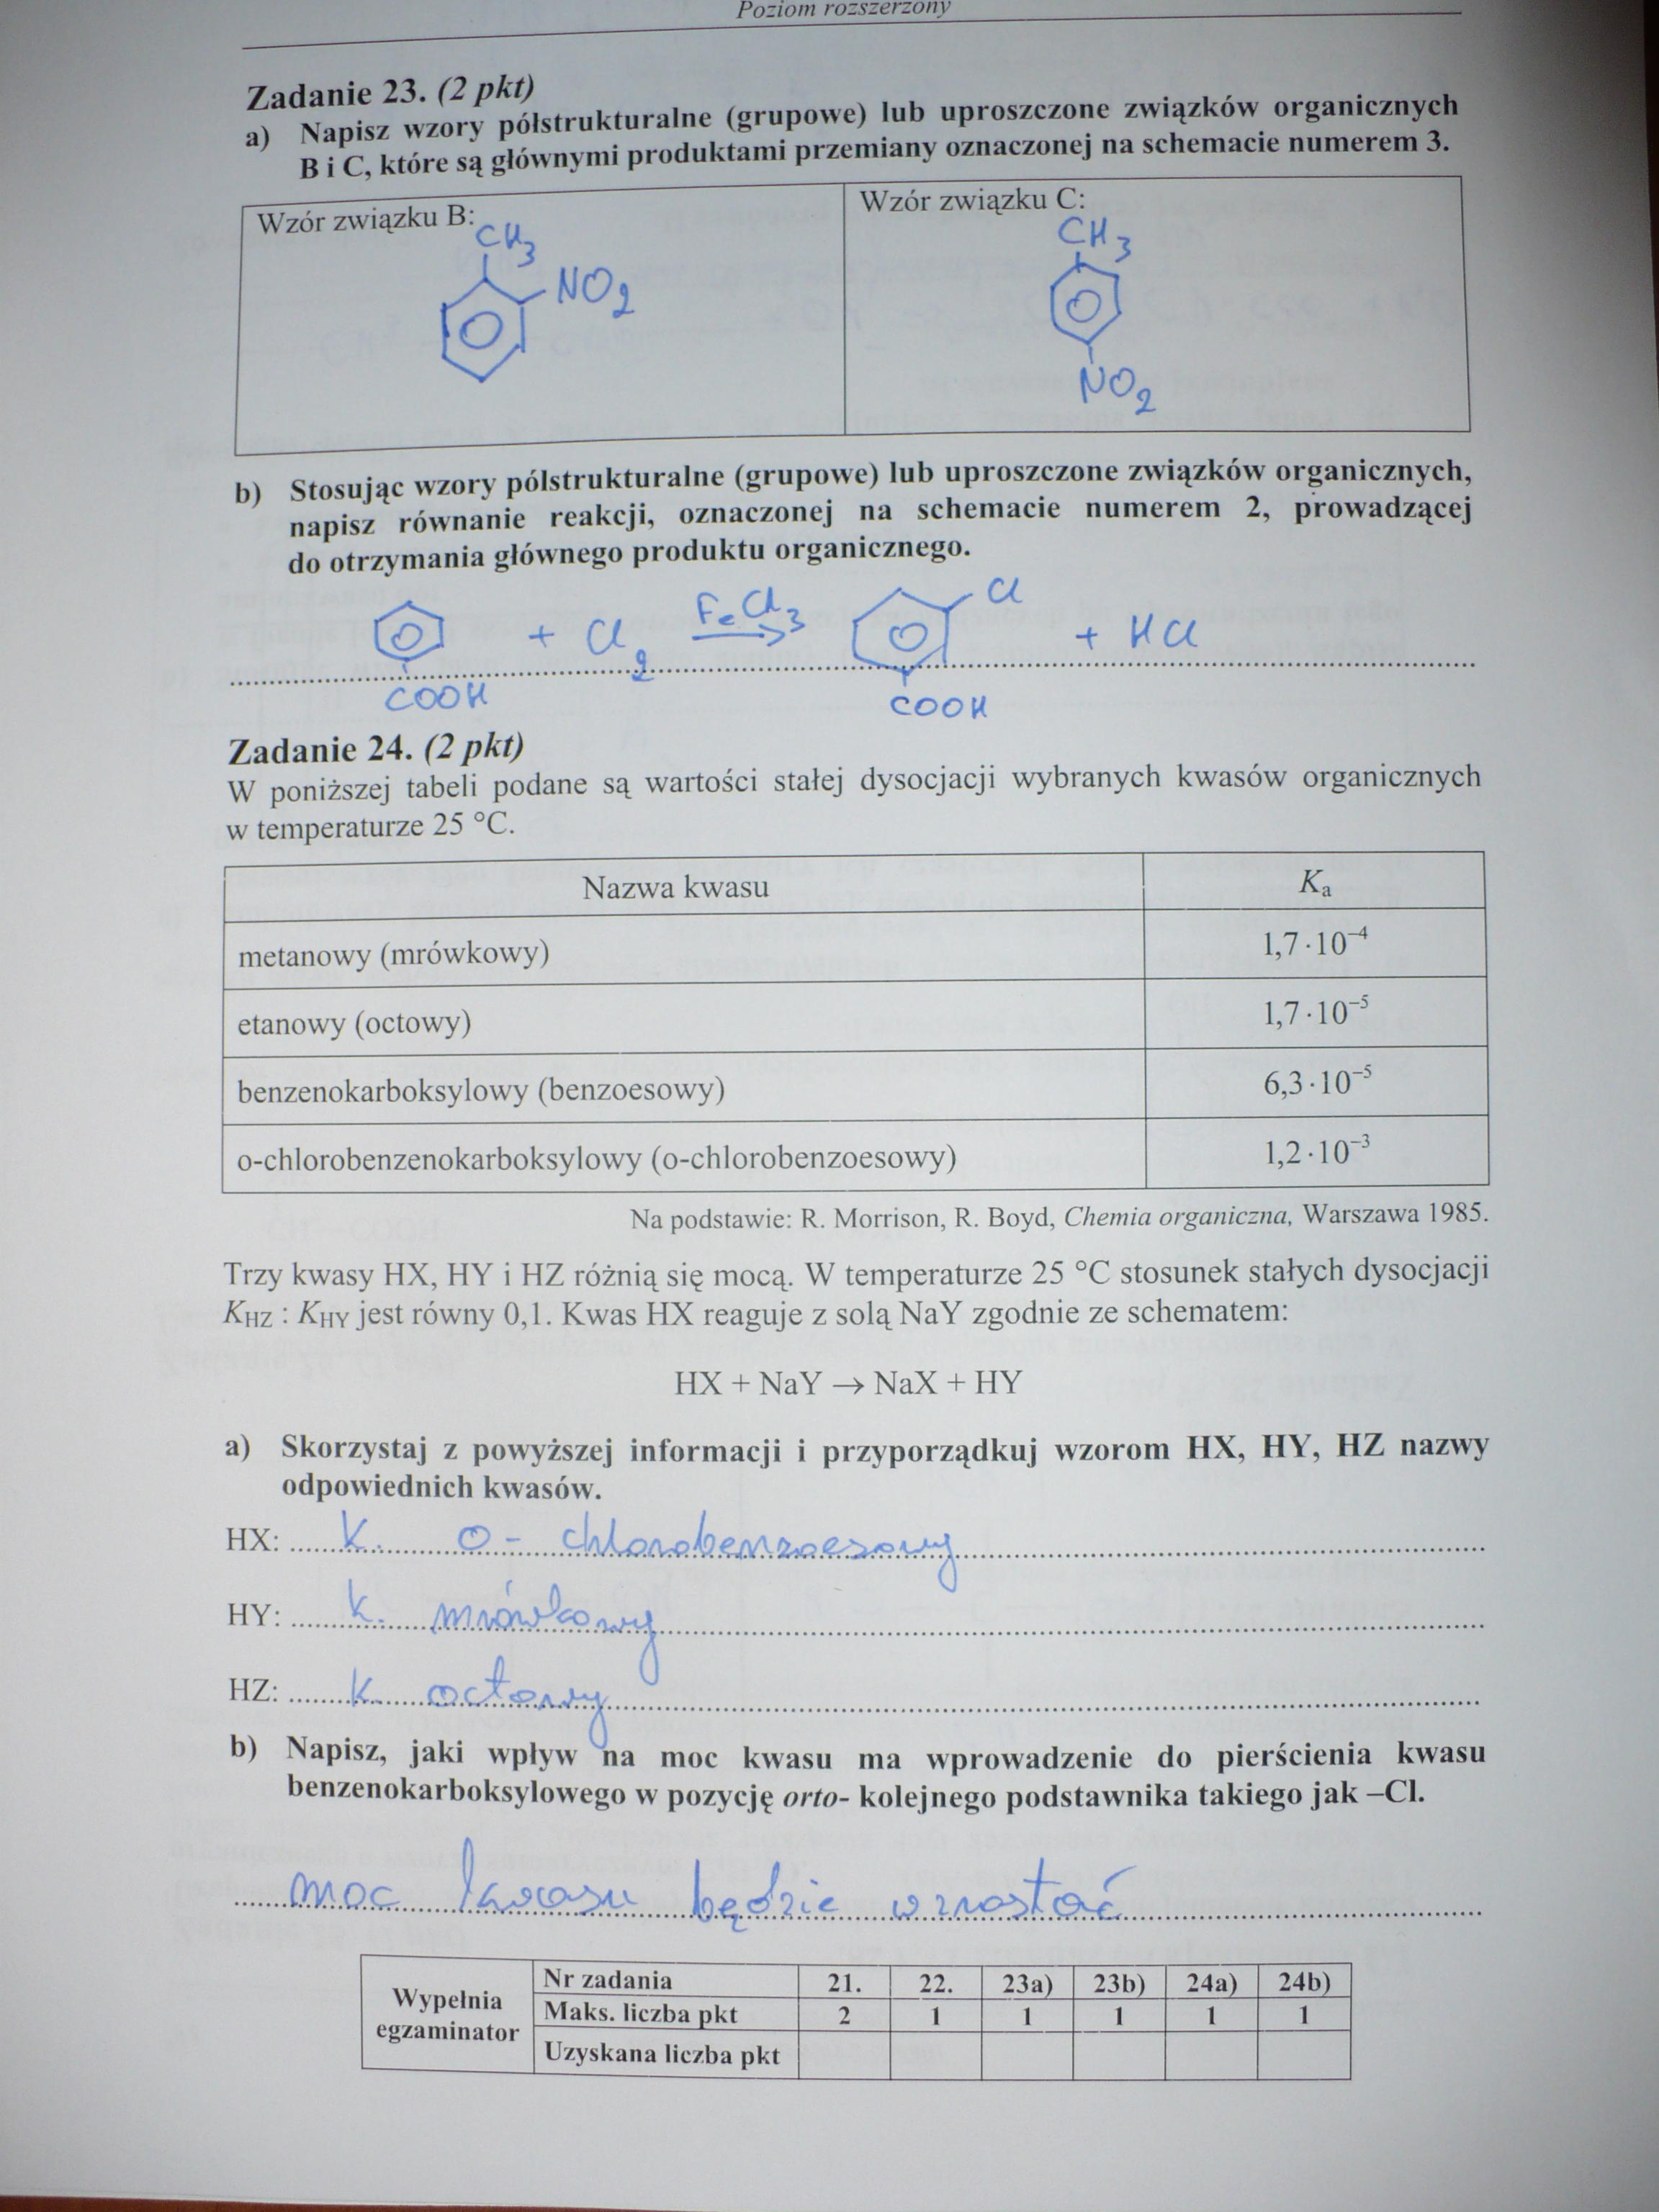 Poziom rozszerzony
Zadanie 23. (2 pkt)
a) Napisz wzory półstrukturalne (grupowe) lub uproszczone związków organicznych
B i C, które są głównymi produktami przemiany oznaczonej na schemacie numerem 3.
Wzór związku B:
CH3
NO2
Wzór związku C:
CH3
NO2
b) Stosując wzory półstrukturalne (grupowe) lub uproszczone związków organicznych,
napisz równanie reakcji, oznaczonej na schemacie numerem 2, prowadzącej
do otrzymania głównego produktu organicznego.
+ Cl2 FeCl3 Cl + HCl
COOH COOH
Zadanie 24. (2 pkt)
W poniższej tabeli podane są wartości stałej dysocjacji wybranych kwasów organicznych
w temperaturze 25 °C.
Nazwa kwasu Ka
metanowy (mrówkowy) 1,7·10⁻⁴
etanowy (octowy) 1,7·10⁻⁵
benzenokarboksylowy (benzoesowy) 6,3·10⁻⁵
o-chlorobenzenokarboksylowy (o-chlorobenzoesowy) 1,2·10⁻³
Na podstawie: R. Morrison, R. Boyd, Chemia organiczna, Warszawa 1985.
Trzy kwasy HX, HY i HZ różnią się mocą. W temperaturze 25 °C stosunek stałych dysocjacji
KHZ : KHY jest równy 0,1. Kwas HX reaguje z solą NaY zgodnie ze schematem:
HX + NaY → NaX + HY
a) Skorzystaj z powyższej informacji i przyporządkuj wzorom HX, HY, HZ nazwy
odpowiednich kwasów.
HX: k. o- chlorobenzoesowy
HY: k. mrówkowy
HZ: k. octowy
b) Napisz, jaki wpływ na moc kwasu ma wprowadzenie do pierścienia kwasu
benzenokarboksylowego w pozycję orto- kolejnego podstawnika takiego jak –Cl.
moc kwasu będzie wzrastać
Wypełnia
egzaminator
Nr zadania 21. 22. 23a) 23b) 24a) 24b)
Maks. liczba pkt 2 1 1 1 1 1
Uzyskana liczba pkt